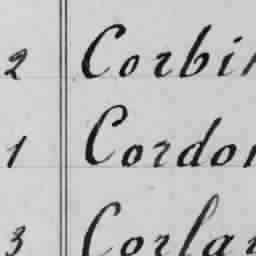 2 Corbin
1 Cordon
3 Corlar